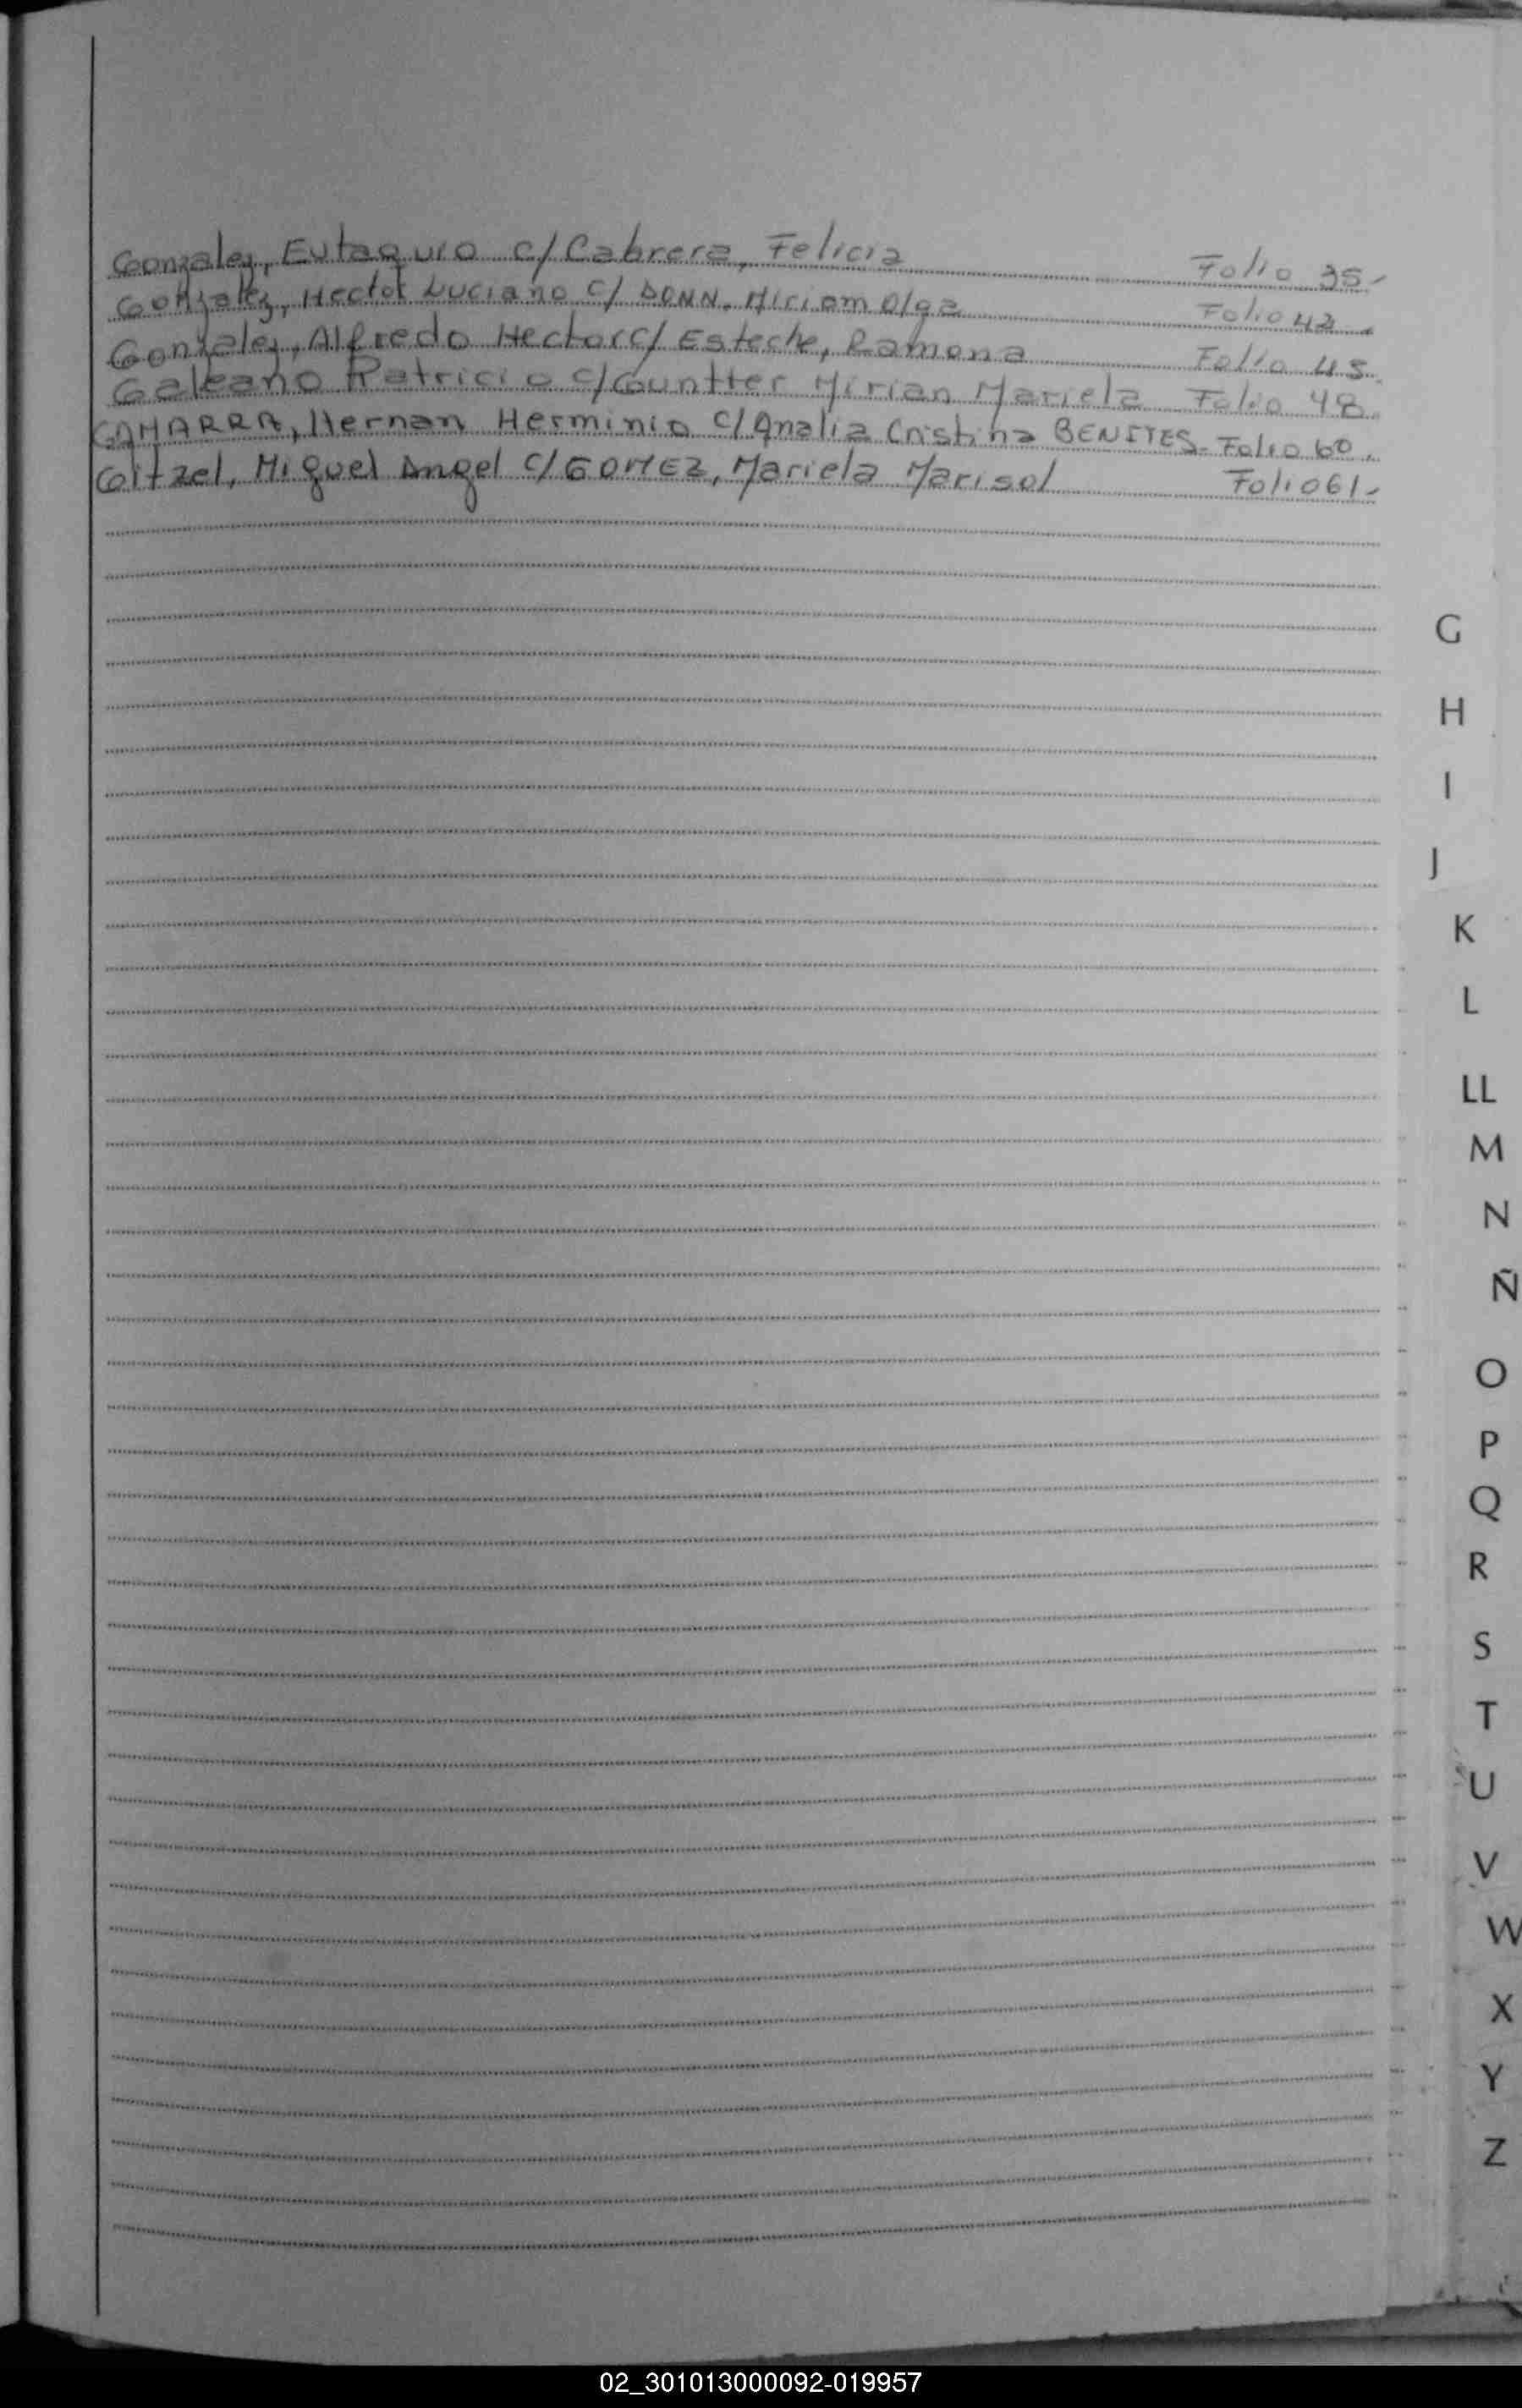 Gonzalez, Eutaquio c/ Cabrera, Felicia Folio 35-
Gonzalez, Hector Luciano c/ DONN. Miriam Olga Folio 42.
Gonzalez, Alfredo Hector c/ Esteche, Ramona Folio 45.
Galeano Patricio c/ Guntter Mirian Mariela Folio 48.
GAMARRA, Hernan Herminio c/ Analia Cristina BENITES. Folio 60.
Gitzel, Miguel Angel c/ GOMEZ, Mariela Marisol Folio 61-
G
H
I
J
K
L
LL
M
N
Ñ
O
P
Q
R
S
T
U
V
W
X
Y
Z
02_301013000092-019957